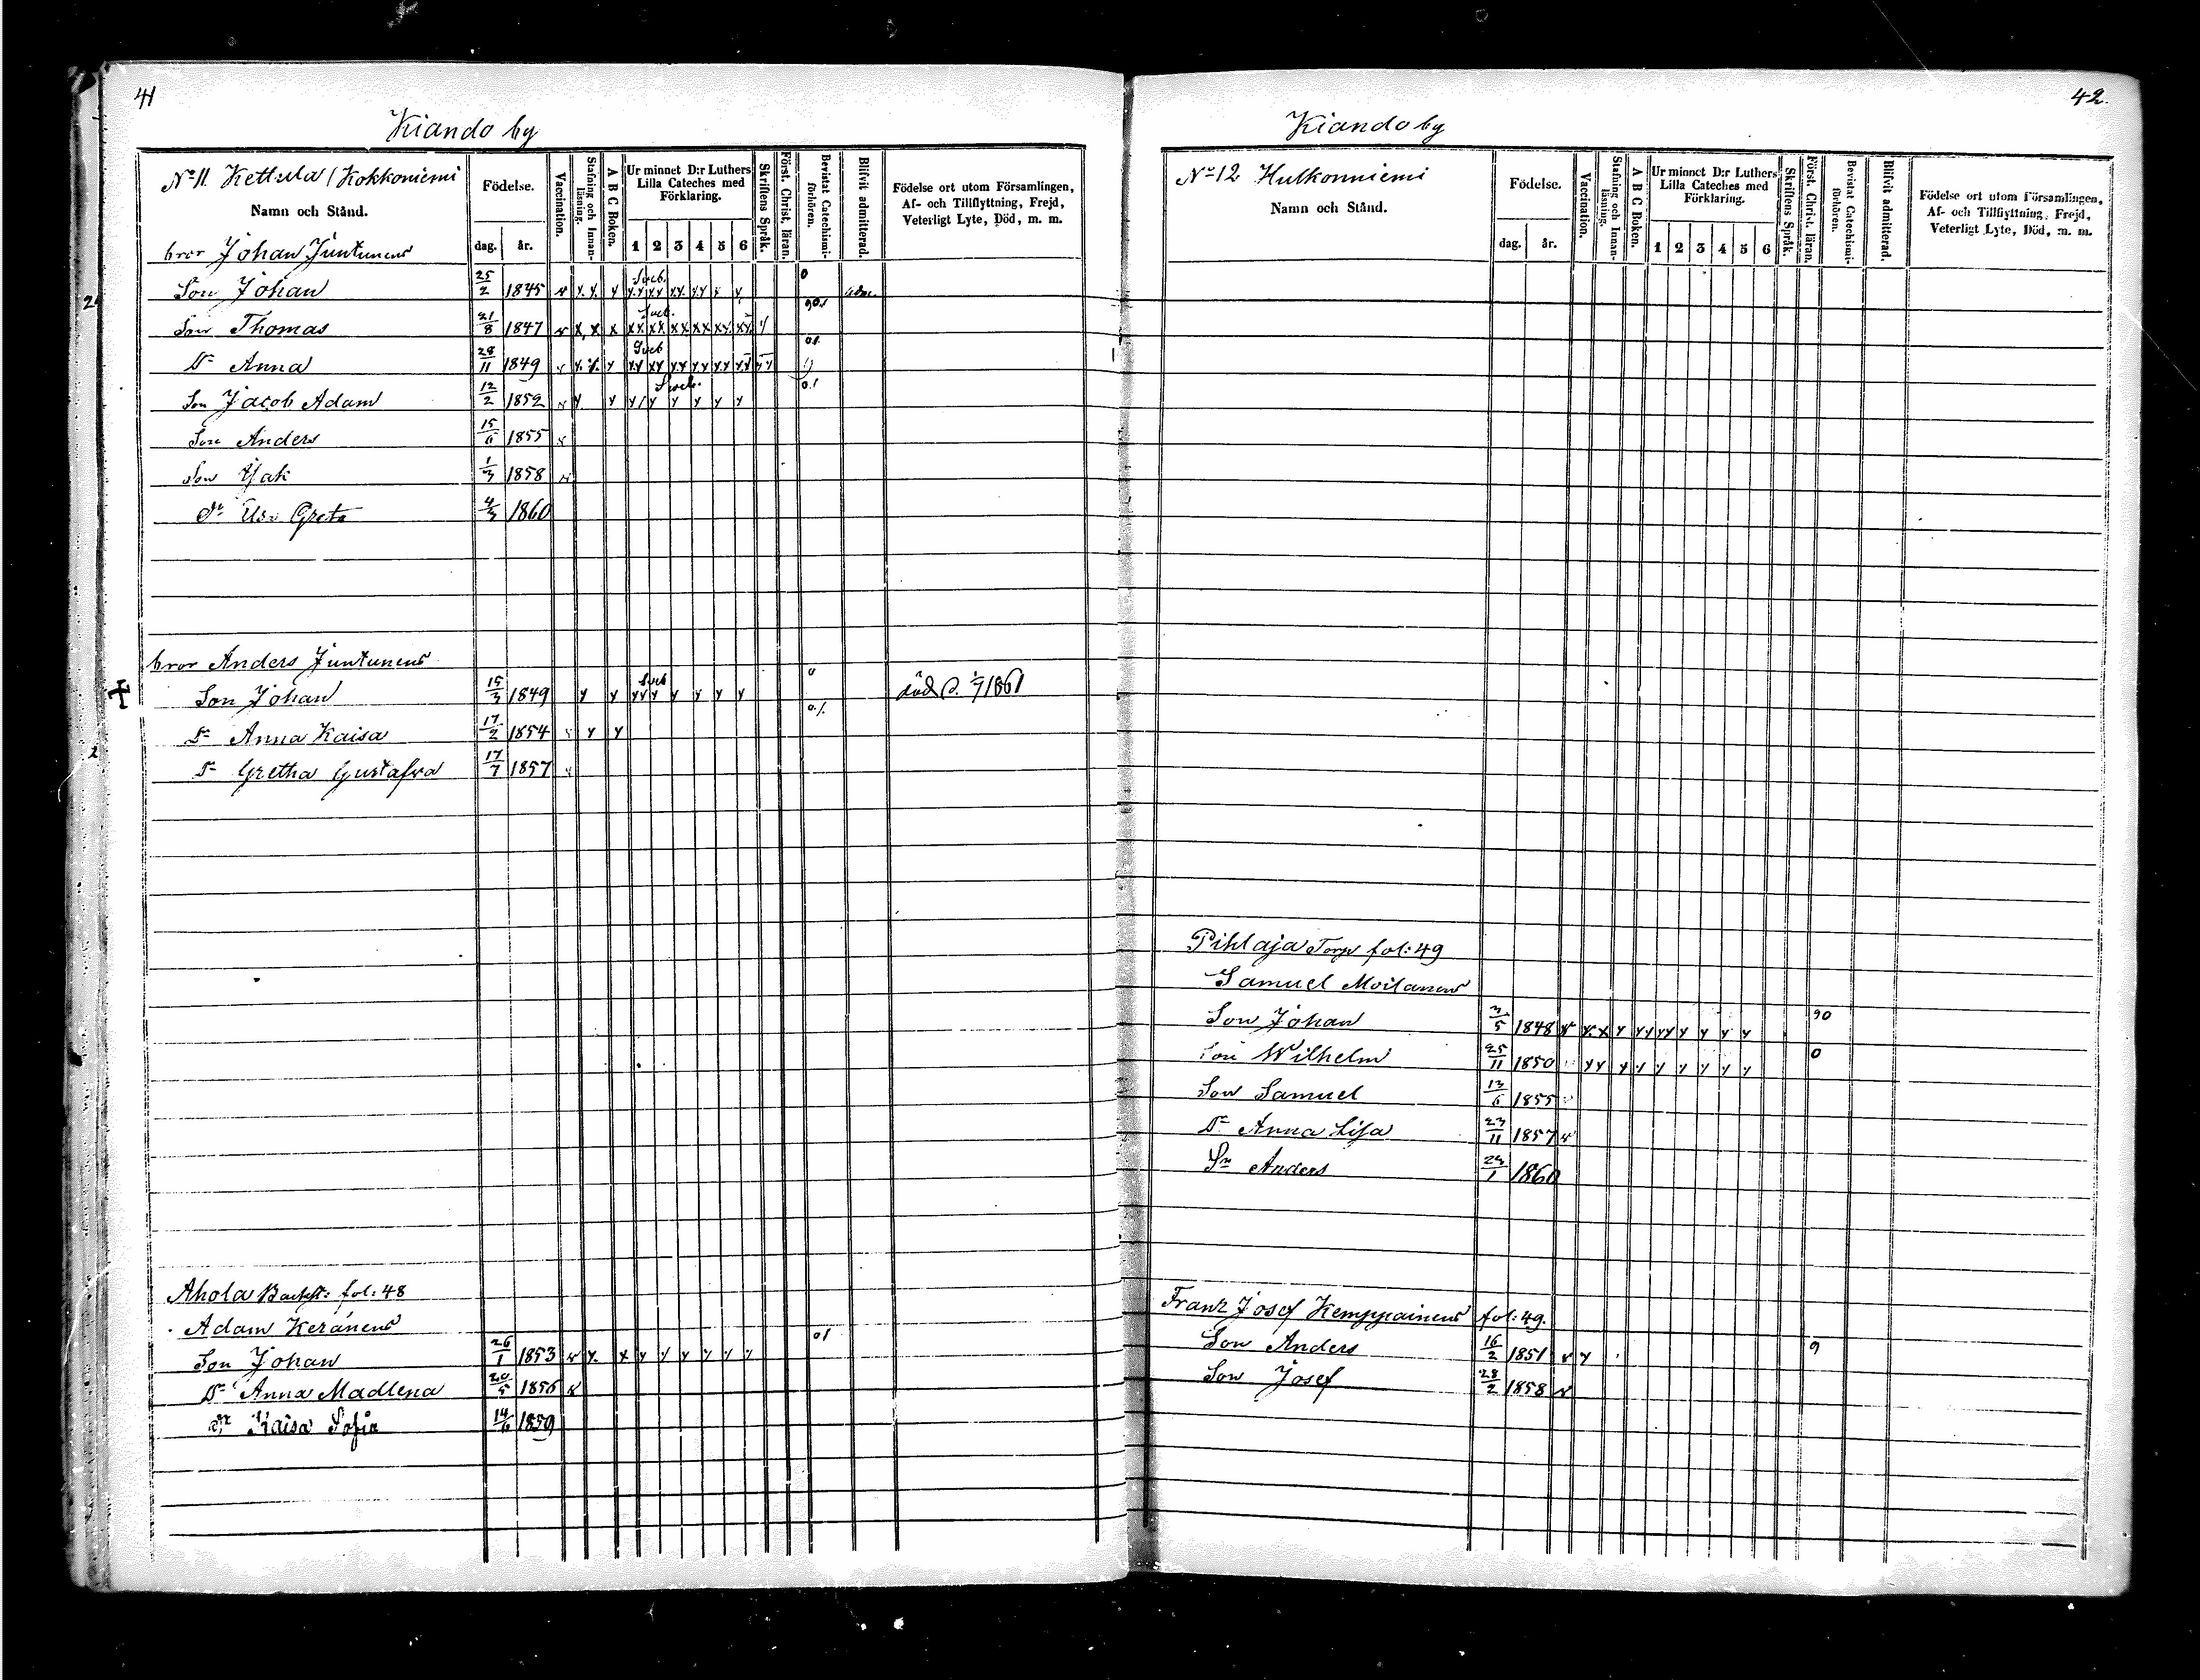 41
Kiando by
No 11. Kettula / Kokkoniemi
Namn och Stånd.
Födelse.
dag. år.
Vaccination.
Stafning och Innanläsning.
A B C Boken.
Ur minnet D:r Luthers Lilla Cateches med Förklaring.
1 2 3 4 5 6
Skriftens Språk.
Först. Christ. läran.
Bevistat Catechismiförhören.
Blifvit admitterad.
Födelse ort utom Församlingen, Af- och Tillflyttning, Frejd, Veterligt Lyte, Död, m. m.
bror Johan Juntunens
Son Johan 25/2 1845 Sveb. 0 adm.
Son Thomas 21/8 1847 Sveb. 901
Dr Anna 28/11 1849 Sveb 01
Son Jacob Adam 12/2 1852 Sveb. 0.1
Son Anders 15/6 1855
Son Isak 1/3 1858
dr Greta 4/3 1860
bror Anders Juntunens
Son Johan 15/3 1849 Sveb 0 död d. 1/7 1861
Dr Anna Kaisa 17/2 1854 0.1.
Dr Gretha Gustafva 17/7 1857
Ahola Backst: fol: 48
Adam Keränens
Son Johan 26/1 1853 01
Dr Anna Madlena 20/5 1856
dr Kaisa Sofia 14/6 1859
42.
Kiando by
No 12 Hulkonniemi
Namn och Stånd.
Födelse.
dag. år.
Vaccination.
Stafning och Innanläsning.
A B C Boken.
Ur minnet D:r Luthers Lilla Cateches med Förklaring.
1 2 3 4 5 6
Skriftens Språk.
Först. Christ. läran.
Bevistat Catechismiförhören.
Blifvit admitterad.
Födelse ort utom Församlingen, Af- och Tillflyttning, Frejd, Veterligt Lyte, Död, m. m.
Pihlaja Torp fol: 49
Samuel Moilanens
Son Johan 3/5 1848 90
Son Wilhelm 25/11 1850 0
Son Samuel 13/6 1855
Dr Anna Lisa 23/11 1857
Sn Anders 24/1 1860
Franz Josef Kemppainens fol: 49.
Son Anders 16/2 1851 9
Son Josef 28/2 1858